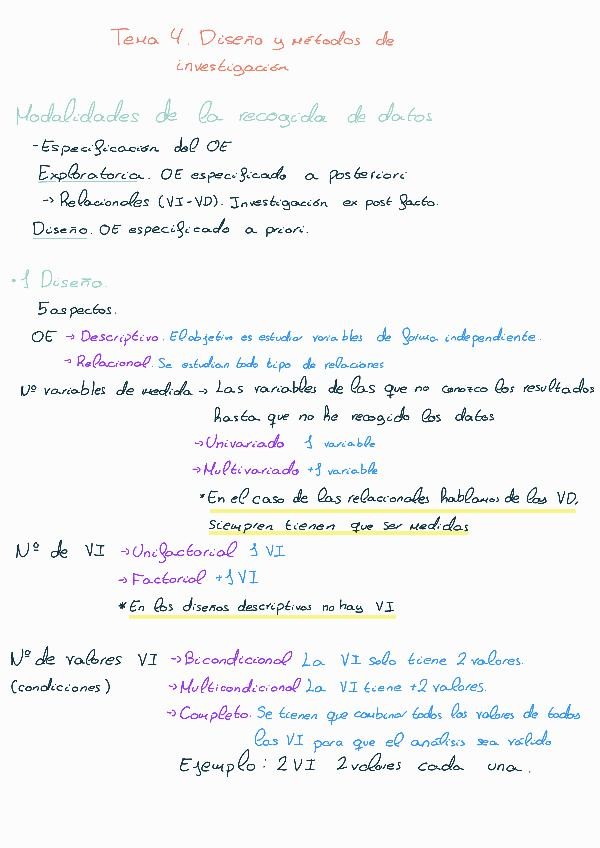 Tema 4. Diseño y métodos de
investigación
Modalidades de la recogida de datos
-Especificación del OE
Exploratoria. OE especificado a posteriori
→ Relacionales (VI-VD). Investigación ex post facto.
Diseño. OE especificado a priori.
·1 Diseño.
5 aspectos.
OE → Descriptivo. El objetivo es estudiar variables de forma independiente.
→ Relacional. Se estudian todo tipo de relaciones
Nº variables de medida → Las variables de las que no conozco los resultados
hasta que no he recogido los datos
→ Univariado 1 variable
→ Multivariado +1 variable
*En el caso de las relacionales hablamos de las VD,
siempren tienen que ser medidas
Nº de VI → Unifactorial 1 VI
→ Factorial +1 VI
* En los diseños descriptivos no hay VI
Nº de valores VI → Bicondicional La VI solo tiene 2 valores.
(condiciones) → Multicondicional La VI tiene +2 valores.
→ Completo. Se tienen que combinar todos los valores de todas
las VI para que el análisis sea válido
Ejemplo: 2 VI 2 valores cada una.